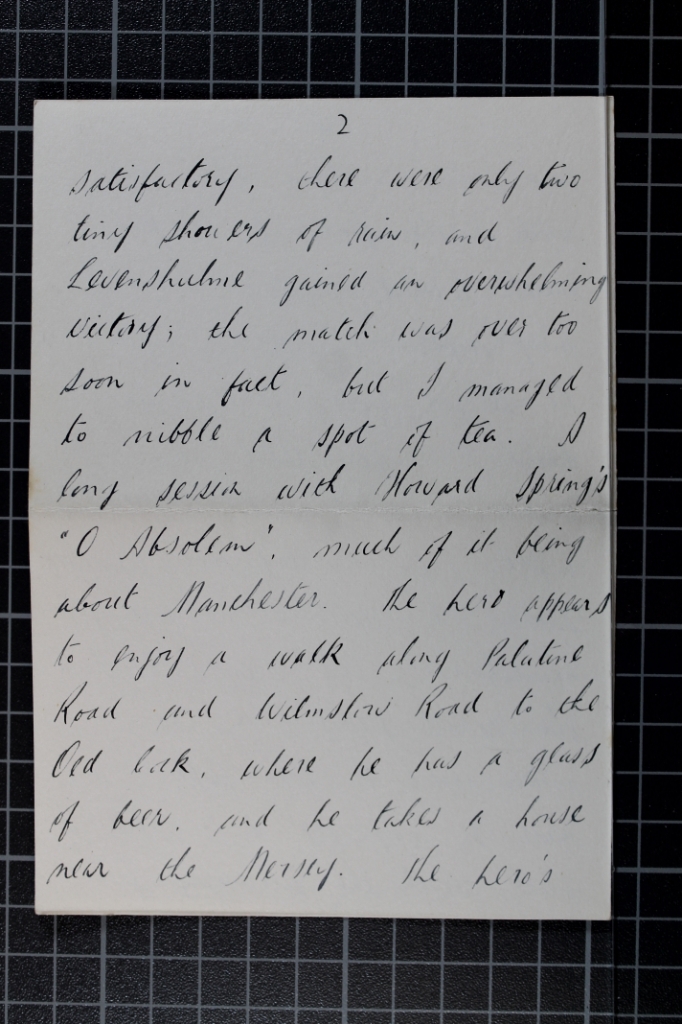 2
satisfactory, there were only two
tiny showers of rain, and
Levenshulme gained an overwhelming
victory; the match was over too
soon in fact, but I managed
to nibble a spot of tea. A
long session with Howard Spring's
"O Absolem", much of it being
about Manchester. The hero appears
to enjoy a walk along Palatine
Road and Wilmslow Road to the
Old Cock, where he has a glass
of beer, and he takes a house
near the Mersey. The hero's